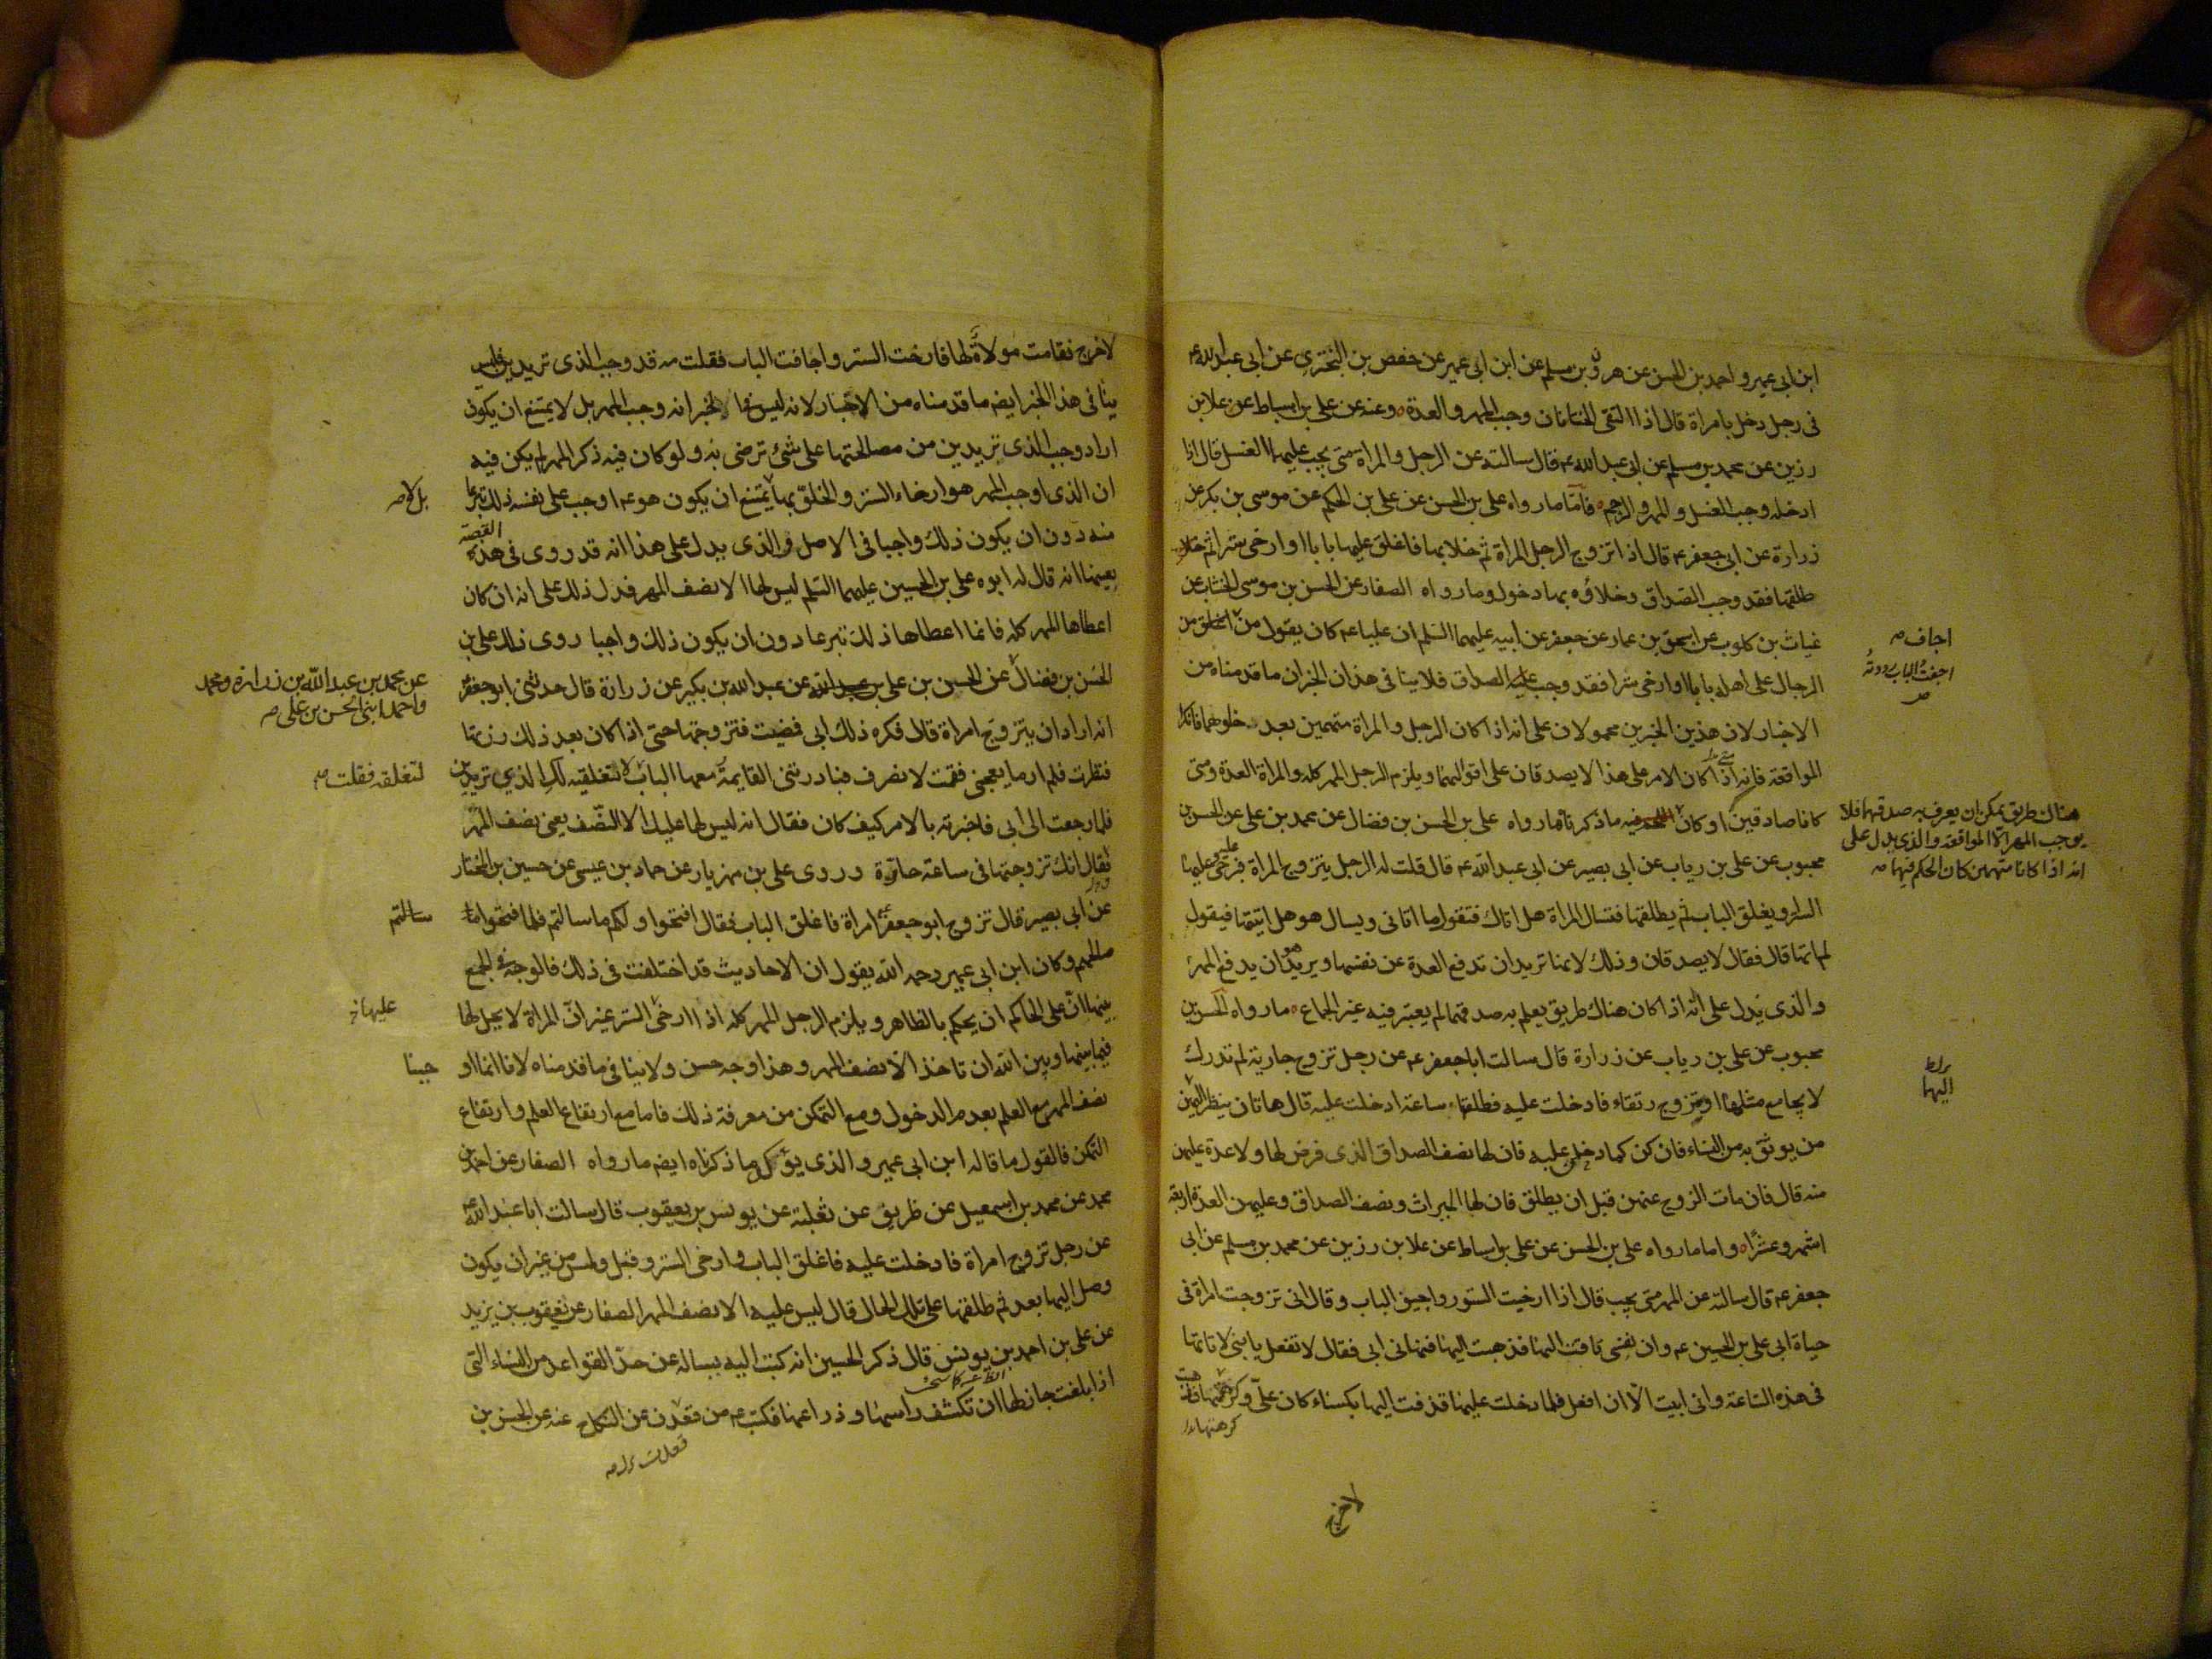 ابن ابى عمير و احمد بن الحسن عن هرون بن مسلم عن ابن ابى عمير عن حفص بن البخترى عن ابى عبد الله ع
فى رجل دخل بامراة قال اذا التقى الختانان وجب المهر و العدة وعنه عن على بن اسباط عن علا بن
رزين عن محمد بن مسلم عن ابى عبد الله ع قال سالته عن الرجل و المراة متى يجب عليهما الغسل قال اذا
ادخله وجب الغسل و المهر و الرجم فاما ما رواه على بن الحسن عن على بن الحكم عن موسى بن بكر عن
زرارة عن ابى جعفر ع قال اذا تزوج الرجل المراة ثم خلا بها فاغلق عليها بابا او ارخى سترا ثم
طلقها فقد وجب الصداق وخلاؤه بها دخول وما رواه الصفار عن الحسن بن موسى الخشاب عن
غياث بن كلوب عن اسحق بن عمار عن جعفر عن ابيه عليهما السلم ان عليا ع كان يقول من اغلق من
الرجال على اهله بابا او ارخى سترا فقد وجب عليه الصداق فلا ينافى هذان الخبران ما قدمناه من
الاخبار لان هذين الخبرين محمولان على انه اذا كان الرجل و المراة متهمين بعد خلوهما فانكرا
المواقعة فانه اذا كان الامر على هذا لا يصدقان على اقوالهما و يلزم الرجل المهر كله و المراة العدة ومتى
كانا صادقين او كان فيه ما ذكرناه ما رواه على بن الحسن بن فضال عن محمد بن على عن الحسن بن
محبوب عن على بن رياب عن ابى بصير عن ابى عبد الله ع قال قلت له الرجل يتزوج المراة فيرخى عليها
الستر ويغلق الباب ثم يطلقها فتسال المراة هل اتاك فتقول ما اتانى ويسال هو هل اتيتها فيقول
لم اتها قال فقال لا يصدقان وذلك لانها تريد ان تدفع العدة عن نفسها ويريد هو ان يدفع المهر
والذى يدل على انه اذا كان هناك طريق يعلم به صدقهما لم يعتبر فيه غير الجماع ما رواه الحسن بن
محبوب عن على بن رياب عن زرارة قال سالت ابا جعفر ع عن رجل تزوج جارية لم تدرك
لا يجامع مثلها او تزوج رتقاء فادخلت عليه فطلقها ساعة ادخلت عليه قال هاتان ينظر اليهن
من يوثق به من النساء فان كن كما دخلن عليه فان لها نصف الصداق الذى فرض لها ولا عدة عليهن
منه قال فان مات الزوج عنهن قبل ان يطلق فان لها الميراث ونصف الصداق وعليهن العدة اربعة
اشهر وعشرا واما ما رواه على بن الحسن عن على بن اسباط عن علا بن رزين عن محمد بن مسلم عن ابى
جعفر ع قال سالته عن المهر متى يجب قال اذا ارخيت الستور واجيف الباب وقال انى تزوجت امراة فى
حياة ابى على بن الحسين ع وان نفسى تاقت اليها فذهبت اليها فنهانى ابى فقال لا تفعل يا بنى لا تاتها
فى هذه الساعة وانى ابيت الا ان افعل فلما دخلت عليها قذفت اليها بكساء كان على وكرهتها
كرهتها
لاخرج
اجاف
اجفت الباب رددته
هناك طريق يمكن ان يعرف به صدقهما فلا
يوجب المهر الا المواقعة والذى يدل على
انه اذا كانا متهمين كان الحكم فيهما
اليها
لاخرج فقامت مولاة لها فارخت الستر واجافت الباب فقلت مه قد وجب الذى تريدين فليس
ينافى هذا الخبر ايضا ما قدمناه من الاخبار لانه ليس فى الخبر انه وجب المهر بل لا يمتنع ان يكون
اراد وجب الذى تريدين من مصالحتها على شئ ترضى به ولو كان فيه ذكر المهر لم يكن فيه
ان الذى اوجب المهر هو ارخاء الستر والخلو بها يمتنع ان يكون هو ع اوجب على نفسه ذلك تبرعا
منه دون ان يكون ذلك واجبا فى الاصل والذى يدل على هذا انه قد روى فى هذه القصة
بعينها انه قال له ابوه على بن الحسين عليهما السلم ليس لها الا نصف المهر فدل ذلك على انه ان كان
اعطاها المهر كله فانما اعطاها ذلك تبرعا دون ان يكون ذلك واجبا روى ذلك على بن
الحسن بن فضال عن الحسن بن على بن عبد الله عن عبد الله بن بكير عن زرارة قال حدثنى ابو جعفر
انه اراد ان يتزوج امراة قال فكره ذلك ابى فمضيت فتزوجتها حتى اذا كان بعد ذلك زرتها
فنظرت فلم ار ما يعجبنى فقمت لانصرف فبادرتنى القايمة معها الباب لتغلقيه لك الذى تريدين
فلما رجعت الى ابى فاخبرته بالامر كيف كان فقال انه ليس لها عليك الا النصف يعنى نصف المهر
فقال انك تزوجتها فى ساعة حارة وروى على بن مهزيار عن حماد بن عيسى عن حسين بن المختار
عن ابى بصير قال تزوج ابو جعفر امراة فاغلق الباب فقال افتحوا ولكم ما سالتم فلما فتحوا
صالحهم وكان ابن ابى عمير رحمه الله يقول ان الاحاديث قد اختلفت فى ذلك فالوجه فى الجمع
بينها ان على الحاكم ان يحكم بالظاهر ويلزم الرجل المهر كله اذا ارخى الستر غير ان المراة لا يحل لها
فيما بينها وبين الله ان تاخذ الا نصف المهر وهذا وجه حسن ولا ينافى ما قدمناه لانا انما او
نصف المهر مع العلم بعدم الدخول ومع التمكن من معرفة ذلك فاما مع ارتفاع العلم وارتفاع
التمكن فالقول ما قاله ابن ابى عمير والذى يؤكد ما ذكرناه ايضا ما رواه الصفار عن احمد بن
محمد عن محمد بن اسمعيل عن ظريف عن ثعلبة عن يونس بن يعقوب قال سالت ابا عبد الله ع
عن رجل تزوج امراة فادخلت عليه فاغلق الباب وارخى الستر وقبل ولمس من غير ان يكون
وصل اليها بعد ثم طلقها على تلك الحال قال ليس عليه الا نصف المهر الصفار عن يعقوب بن يزيد
عن على بن احمد بن يونس قال ذكر الحسين انه كتب اليه يساله عن حد القواعد من النساء التى
اذا بلغت جاز لها ان تكشف راسها وذراعها فكتب ع من قعدن عن النكاح عنه عن الحسن بن
بل لا
عن محمد بن عبد الله بن زرارة ومحمد
واحمد ابنى الحسن بن على
لتغلقه فقلت
سالتم
عليهما
جبنا